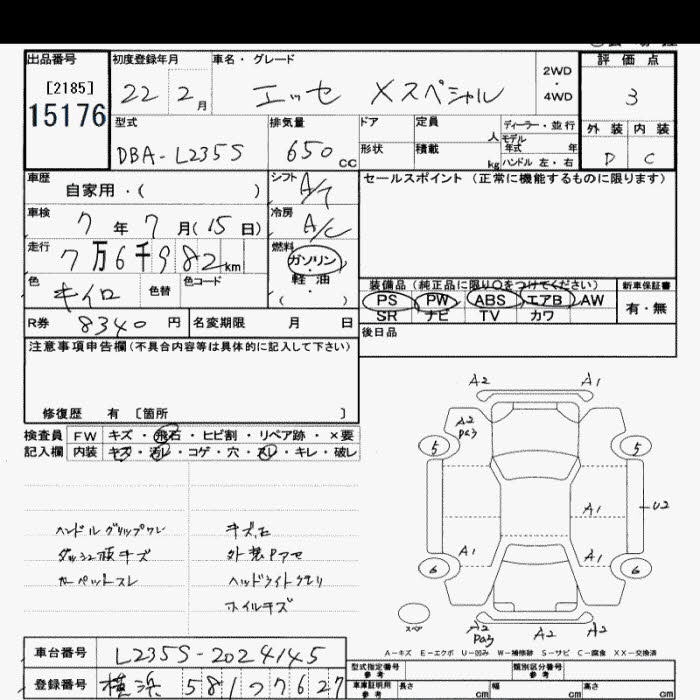 出品番号 初度登録年月 車名・グレード 2WD・4WD 評価点
[2185]
15176
22 2月 エッセ Xスペシャル 3
型式 排気量 ドア 定員 人 ディーラー・並行 外装 内装
モデル年式 年
DBA-L235S 650cc 形状 積載 kg ハンドル 左・右 D C
車歴 自家用・( ) シフト A/T セールスポイント(正常に機能するものに限ります)
車検 7年7月(15日) 冷房 A/C
走行 7万6千982km 燃料 ガソリン・軽油・( )
色 キイロ 色替 色コード
装備品(純正品に限り○をつけてください) 新車保証書
PS PW ABS エアB AW 有・無
SR ナビ TV カワ
R券 8340円 名変期限 月 日 後日品
注意事項申告欄(不具合内容等は具体的に記入して下さい)
修復歴 有 〔箇所 〕
検査員 FW キズ・飛石・ヒビ割・リペア跡・×要
記入欄 内装 キズ・汚レ・コゲ・穴・スレ・キレ・破レ
ハンドルグリップワレ
ダッシュ廻キズ
カーペットスレ
キズ石
外装Pアセ
ヘッドライトクモリ
ホイルキズ
A2 A1
A2
Pa3
5 5
A1 U2
A1 A1
6 6
スペア
A2
Pa3 A2 A2
A-キズ E-エクボ U-凹み W-補修跡 S-サビ C-腐食 XX-交換済
車台番号 L235S-2024145
登録番号 横浜 581 27627
型式指定番号 参考 類別区分番号 参考
車庫証明用 参考 長さ cm 幅 cm 高さ cm